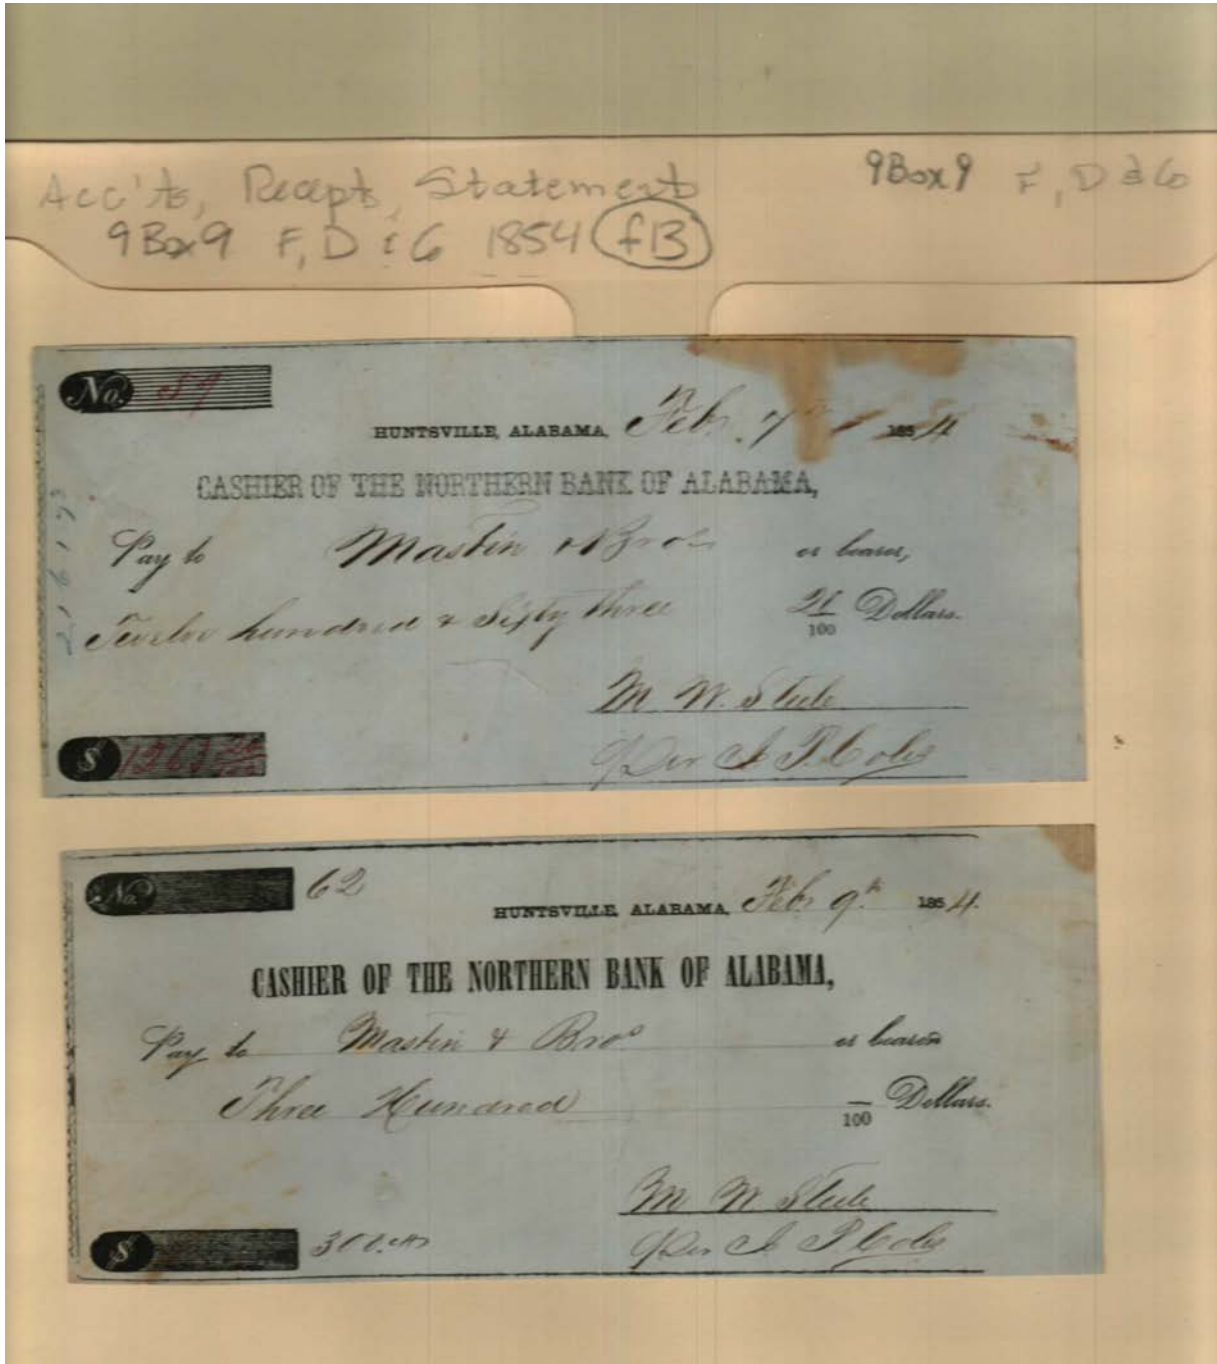 Acc'ts, Recepts, Statements
9Box9 F, D & 6
9Box9 F, D & 6 1854 f13
No. 59
HUNTSVILLE, ALABAMA, Feb. 7th 1854
CASHIER OF THE NORTHERN BANK OF ALABAMA,
Pay to Mastin & Bros or bearer,
Twelve hundred & Sixty three /100 Dollars.
M. W. Steele
$ 1263
Per
No. 62
HUNTSVILLE, ALABAMA, Feb. 9th 1854.
CASHIER OF THE NORTHERN BANK OF ALABAMA,
Pay to Mastin & Bros or bearer
Three Hundred /100 Dollars.
M. W. Steele
$ 300.00
Per